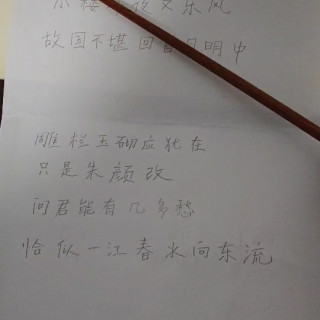 小楼昨夜又东风
故国不堪回首月明中
雕栏玉砌应犹在
只是朱颜改
问君能有几多愁
恰似一江春水向东流